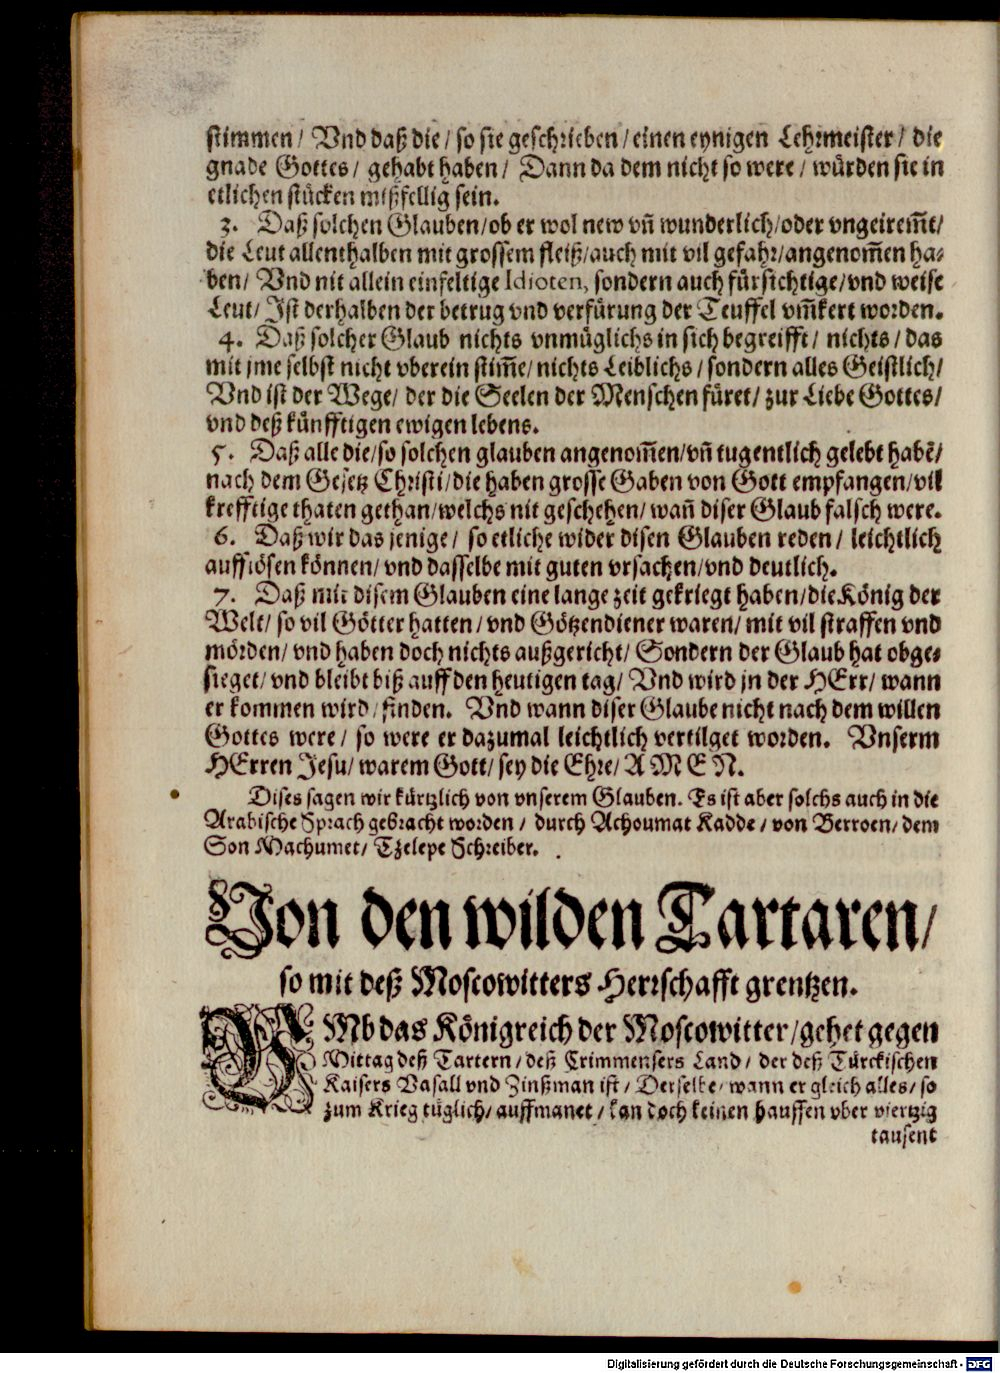 stimmen/ Vnd daß die/ so sie geschrieben/ einen eynigen Lehrmeister/ die
gnade Gottes/ gehabt haben/ Dann da dem nicht so were/ würden sie in
etlichen stücken mißfellig sein.
3. Daß solchen Glauben/ob er wol new vñ wunderlich/oder vngeirem̃t/
die Leut allenthalben mit grossem fleiß/auch mit vil gefahr/angenom̃en ha-
ben/ Vnd nit allein einfeltige Idioten, sondern auch fürsichtige/vnd weise
Leut/ Ist derhalben der betrug vnd verfürung der Teuffel vm̃kert worden.
4. Daß solcher Glaub nichts vnmüglichs in sich begreifft/ nichts/ das
mit jme selbst nicht vberein stim̃e/ nichts Leiblichs/ sondern alles Geistlich/
Vnd ist der Wege/ der die Seelen der Menschen füret/ zur Liebe Gottes/
vnd deß künfftigen ewigen lebens.
5. Daß alle die/so solchen glauben angenom̃en/vñ tugentlich gelebt habẽ/
nach dem Gesetz Christi/die haben grosse Gaben von Gott empfangen/vil
krefftige thaten gethan/welchs nit geschehen/ wañ diser Glaub falsch were.
6. Daß wir das jenige/ so etliche wider disen Glauben reden/ leichtlich
aufflösen können/ vnd dasselbe mit guten vrsachen/vnd deutlich.
7. Daß mit disem Glauben eine lange zeit gekriegt haben/die König der
Welt/ so vil Götter hatten/ vnd Götzendiener waren/ mit vil straffen vnd
mörden/ vnd haben doch nichts außgericht/ Sondern der Glaub hat obge-
sieget/ vnd bleibt biß auff den heutigen tag/ Vnd wird jn der HErr/ wann
er kommen wird/ finden. Vnd wann diser Glaube nicht nach dem willen
Gottes were/ so were er dazumal leichtlich vertilget worden. Vnserm
HErren Jesu/ warem Gott/ sey die Ehre/ A M E N.
Dises sagen wir kürtzlich von vnserem Glauben. Es ist aber solchs auch in die
Arabische Sprach gebracht worden/ durch Achoumat Kadde/ von Berroen/ dem
Son Machumet/ Tzelepe Schreiber.
Von den wilden Tartaren/
so mit deß Moscowitters Herrschafft grentzen.
VMb das Königreich der Moscowitter/gehet gegen
Mittag deß Tartern/ deß Crimmensers Land/ der deß Türckischen
Kaisers Vasall vnd Zinßman ist/ Derselbe/ wann er gleich alles/ so
zum Krieg tüglich/ auffmanet/ kan doch keinen hauffen vber viertzig
tausent
Digitalisierung gefördert durch die Deutsche Forschungsgemeinschaft - DFG